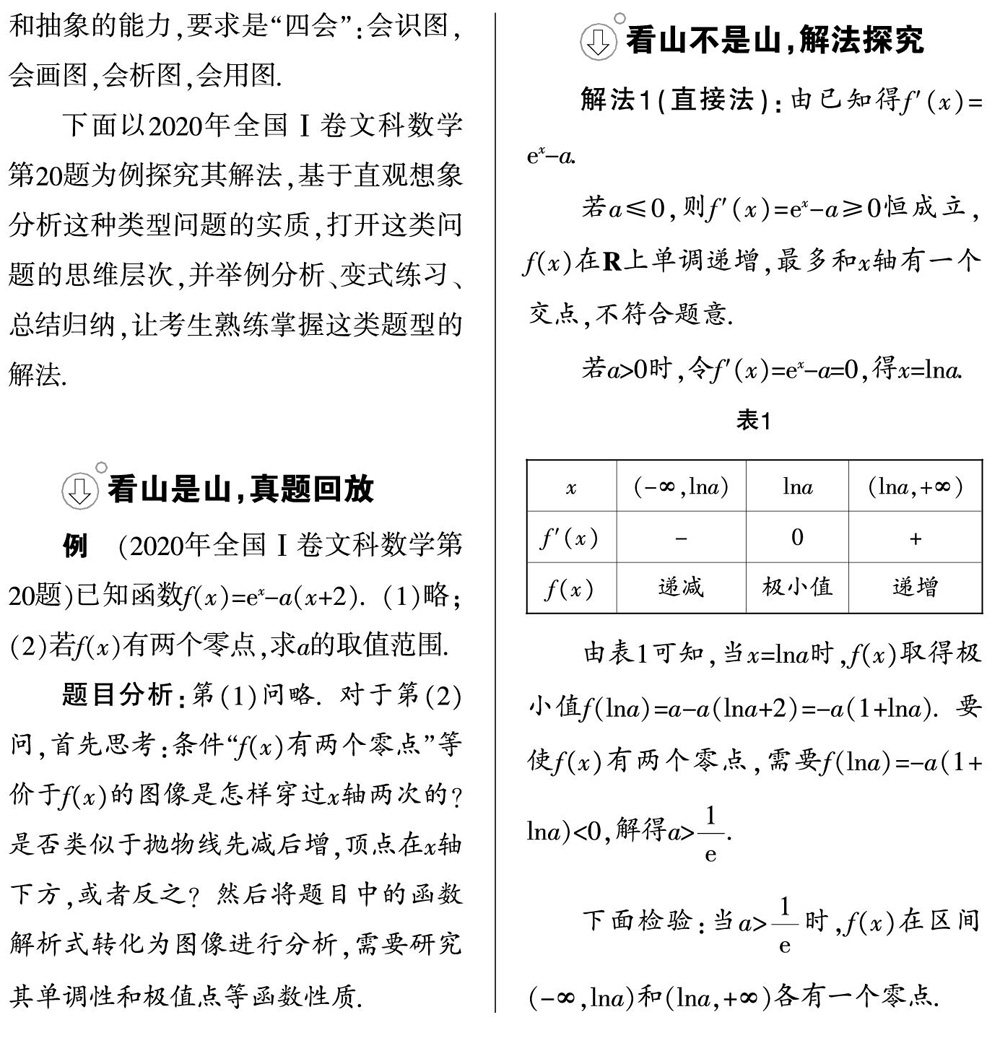 和抽象的能力,要求是“四会”:会识图,
会画图,会析图,会用图.
下面以2020年全国Ⅰ卷文科数学
第20题为例探究其解法,基于直观想象
分析这种类型问题的实质,打开这类问
题的思维层次,并举例分析、变式练习、
总结归纳,让考生熟练掌握这类题型的
解法.
看山是山,真题回放
例 (2020年全国Ⅰ卷文科数学第
20题)已知函数f(x)=eˣ-a(x+2). (1)略;
(2)若f(x)有两个零点,求a的取值范围.
题目分析:第(1)问略. 对于第(2)
问,首先思考:条件“f(x)有两个零点”等
价于f(x)的图像是怎样穿过x轴两次的?
是否类似于抛物线先减后增,顶点在x轴
下方,或者反之? 然后将题目中的函数
解析式转化为图像进行分析,需要研究
其单调性和极值点等函数性质.
看山不是山,解法探究
解法1(直接法):由已知得f′(x)=
eˣ-a.
若a≤0,则f′(x)=eˣ-a≥0恒成立,
f(x)在R上单调递增,最多和x轴有一个
交点,不符合题意.
若a>0时,令f′(x)=eˣ-a=0,得x=lna.
表1
x (-∞,lna) lna (lna,+∞)
f′(x) - 0 +
f(x) 递减 极小值 递增
由表1可知,当x=lna时,f(x)取得极
小值f(lna)=a-a(lna+2)=-a(1+lna). 要
使f(x)有两个零点,需要f(lna)=-a(1+
lna)<0,解得a>1/e.
下面检验:当a>1/e时,f(x)在区间
(-∞,lna)和(lna,+∞)各有一个零点.